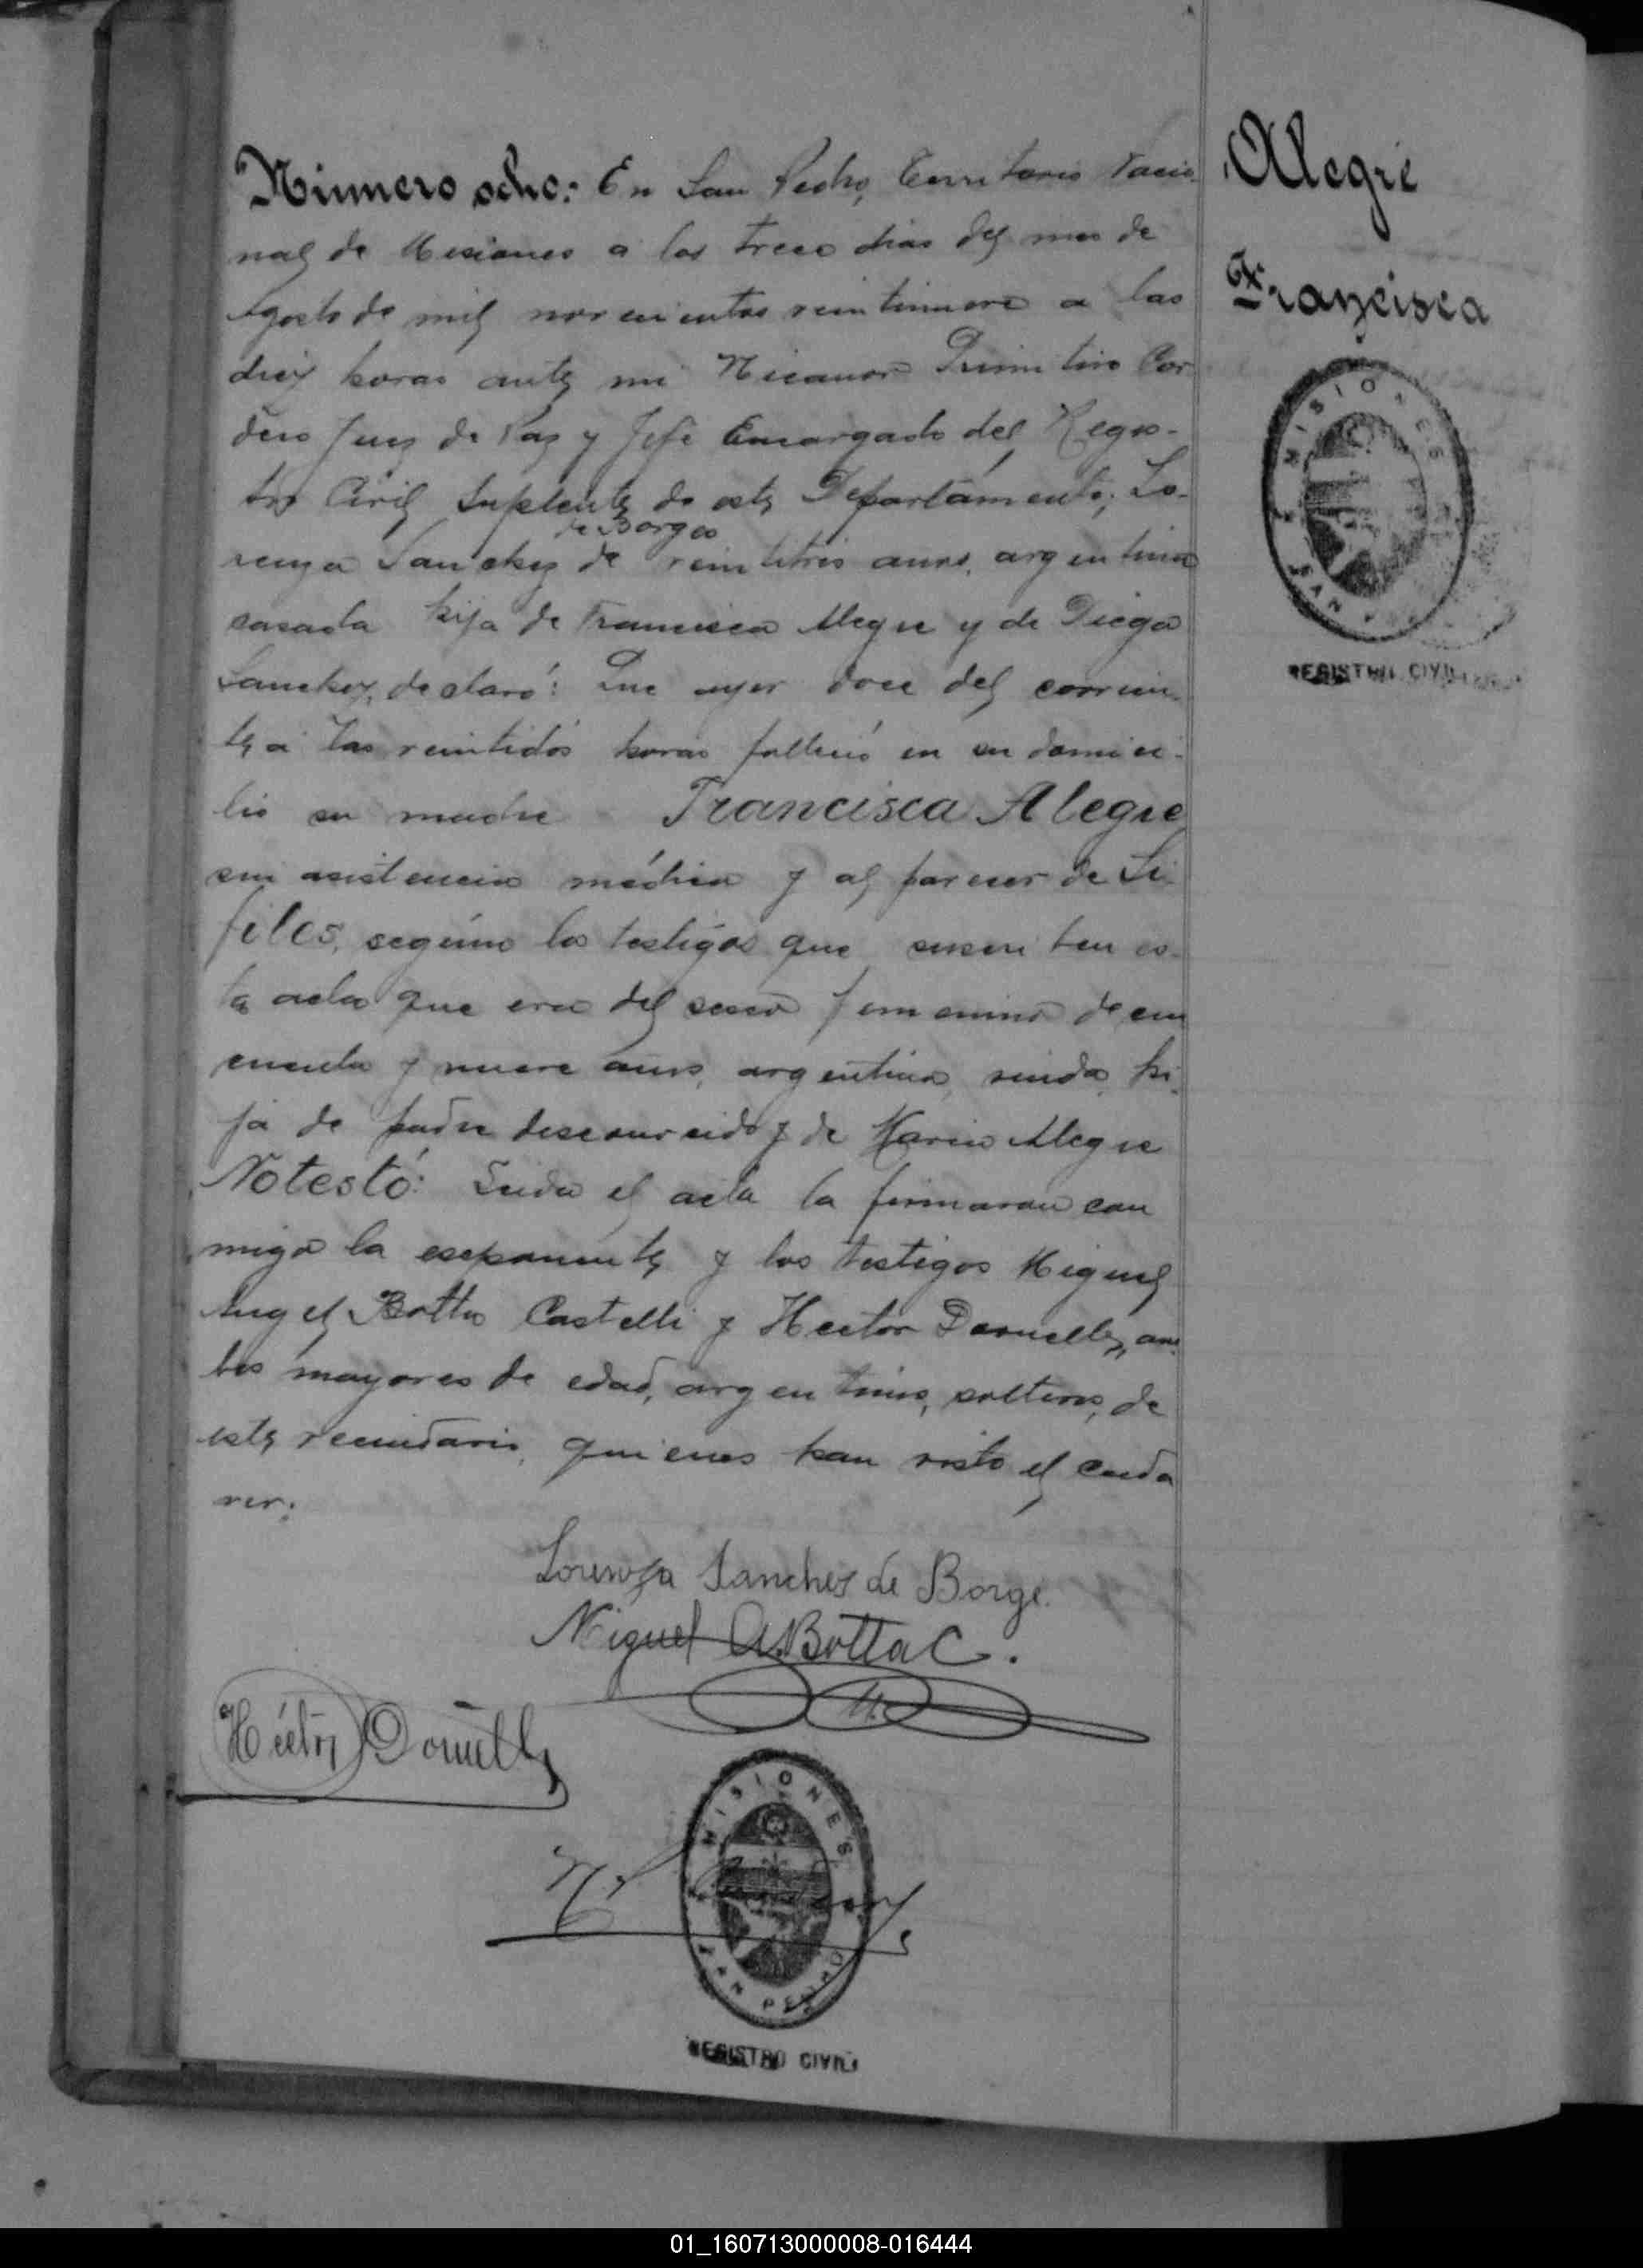 Número ocho: En San Pedro, Territorio Nacio-
nal de Misiones a los trece dias del mes de
Agosto de mil novecientos veintinueve a las
diez horas ante mi Nicanor Primitivo Cor
dero Juez de Paz y Jefe Encargado del Regis-
tro Civil Suplente de este Departamento; Lo-
de Borges
renza Sanchez de veintitrés años, argentina
casada hija de Francisca Alegre y de Diego
Sanchez, declaró: Que ayer doce del corrien-
te a las veintidós horas falleció en su domici-
lio su madre Francisca Alegre
sin asistencia médica y al parecer de Si-
files, segúno los testigos que suscriben es-
ta acta que era del sexo femenino de cin
cuenta y nueve años, argentina, viuda, hi-
ja de padre desconocido y de Maria Alegre
No testó: Leida el acta la firmaron con
migo la exponente y los testigos Miguel
Angel Botta Castelli y Hector Dornelle, am
bos mayores de edad, argentinos, solteros, de
este vecindario, quienes han visto el cada
ver.
Lorenza Sanches de Borge.
Miguel A. Botta C.
Héctor Dornell
MISIONES
SAN PEDRO
REGISTRO CIVIL
Alegre
Francisca
MISIONES
SAN PE
REGISTRO CIVIL
01_160713000008-016444